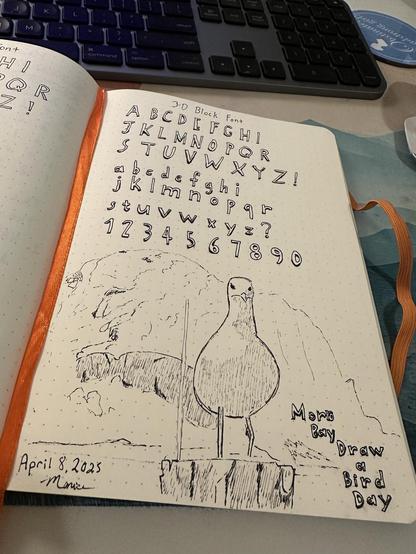 ont
H I
P Q R
Z !
3-D Block Font
A B C D E F G H I
J K L M N O P Q R
S T U V W X Y Z !
a b c d e f g h i
j k l m n o p q r
s t u v w x y z ?
1 2 3 4 5 6 7 8 9 0
Morro
Bay
Draw
a
Bird
Day
April 8, 2025